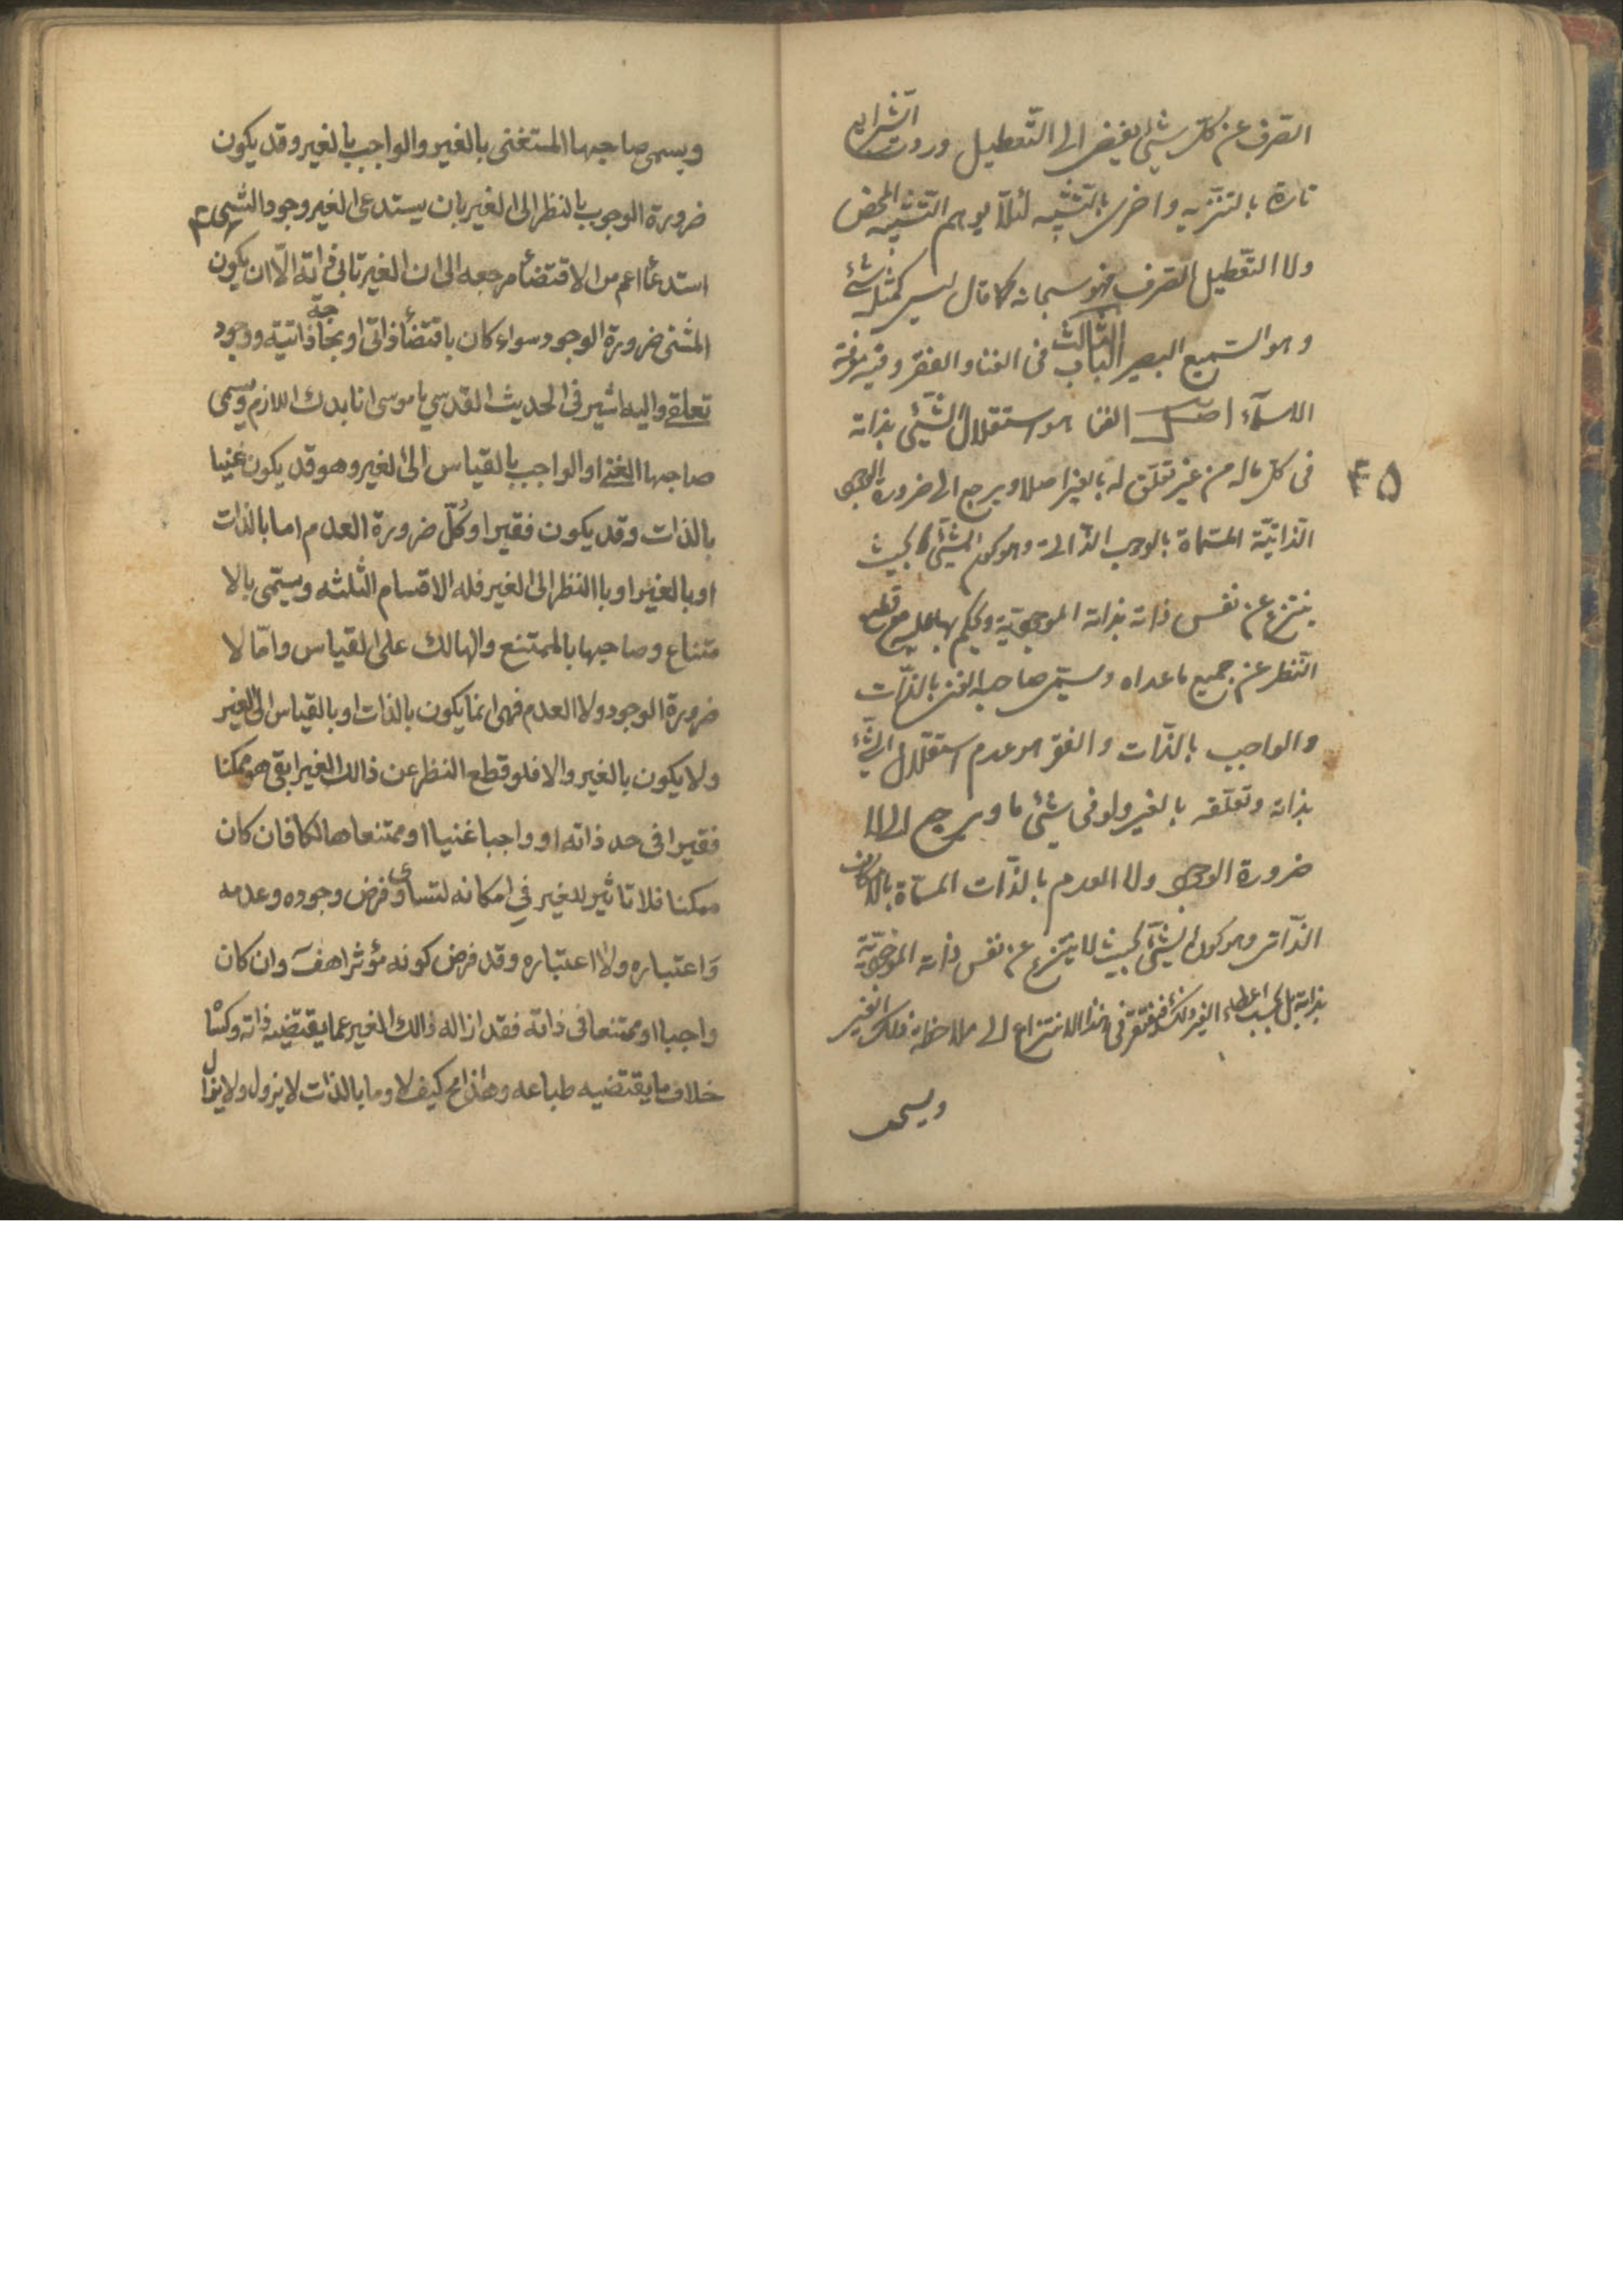 الصّرف عن كلّ شيئ يفضى الى التّعطيل وردت الشرايع
تارة بالتنزيه واخرى بالتّشبيه لئلّا يوهم التّشبيه المحض
ولا التّعطيل الصّرف فهو سبحانه كما قال ليس كمثله شئ
وهو السّميع البصير الباب الثالث فى الغنا والفقر وفيه معرفة
الاسمآء اصل الغنا هو استقلال الشّيئ بذاته
فى كلّ ماله من غير تعلّق له بالغير اصلا ويرجع الى ضرورة الوجود
۴۵
الذّاتيّة المسّماة بالوجوب الذّاتى وهو كون الشّيئ بحيث
ينتزع عن نفس ذاته بذاته الموجوديّة ويحكم بها عليه مع قطع
النّظر عن جميع ماعداه ويسمّى صاحبه الغنى بالذّات
والواجب بالذّات والفقر هو عدم استقلال الشّئ
بذاته وتعلّقه بالغير ولو فى شيئ ما ويرجع الى لا
ضرورة الوجود ولا العدم بالذّات المسمّاة بالامكان
الذّاتى وهو كون الشّيئ بحيث لا ينتزع عن نفس ذاته الموجوديّة
بذاته بل بسبب اعطاء الغير ذلك فيفتقر فى هذا الانتزاع الى ملاحظة ذلك الغير
ويسمى
ويسمى صاحبها المستغنى بالغير والواجب بالغير وقد يكون
ضرورة الوجوب بالنظر الى الغير بان يستدعى الغير وجود الشيئ
استدعأ اعم من الاقتضأ مرجعه الى ان الغير تابى ذاته الّا ان يكون
للشئ ضرورة الوجود سواء كان باقتضأ ذاتى او بحاجة ذاتيته ووجود
تعلقى واليه اشير فى الحديث القدسي ياموسى انا بدك اللازم ويسمى
صاحبها الغنى او الواجب بالقياس الى الغير وهو قد يكون غنيا
بالذات وقد يكون فقيرا وكلّ ضرورة العدم اما بالذات
او بالغير او با النظر الى الغير فله الاقسام الثلثه ويسّمى بالا
متناع وصاحبها بالممتنع والهالك على القياس وامّا لا
ضرورة الوجود ولا العدم فهى انما يكون بالذات او بالقياس الى الغير
ولا يكون بالغير والا فلو قطع النظر عن ذالك الغير ابقى هو ممكنا
فقيرا فى حد ذاته او واجبا غنيا او ممتنعا هالكا فان كان
ممكنا فلا تاثير لغير في امكانه لتساوى فرض وجوده وعدمه
وَاعتباره ولا اعتباره وقد فرض كونه مؤثرا هفَ وان كان
واجبا او ممتنعا فى ذاته فقد ازاله ذالك الغير عما يقتضيه ذاته وكسْا
خلاف ما يقتضيه طباعه وهذا مح كيف لا وما بالذات لا يزول ولا يزال